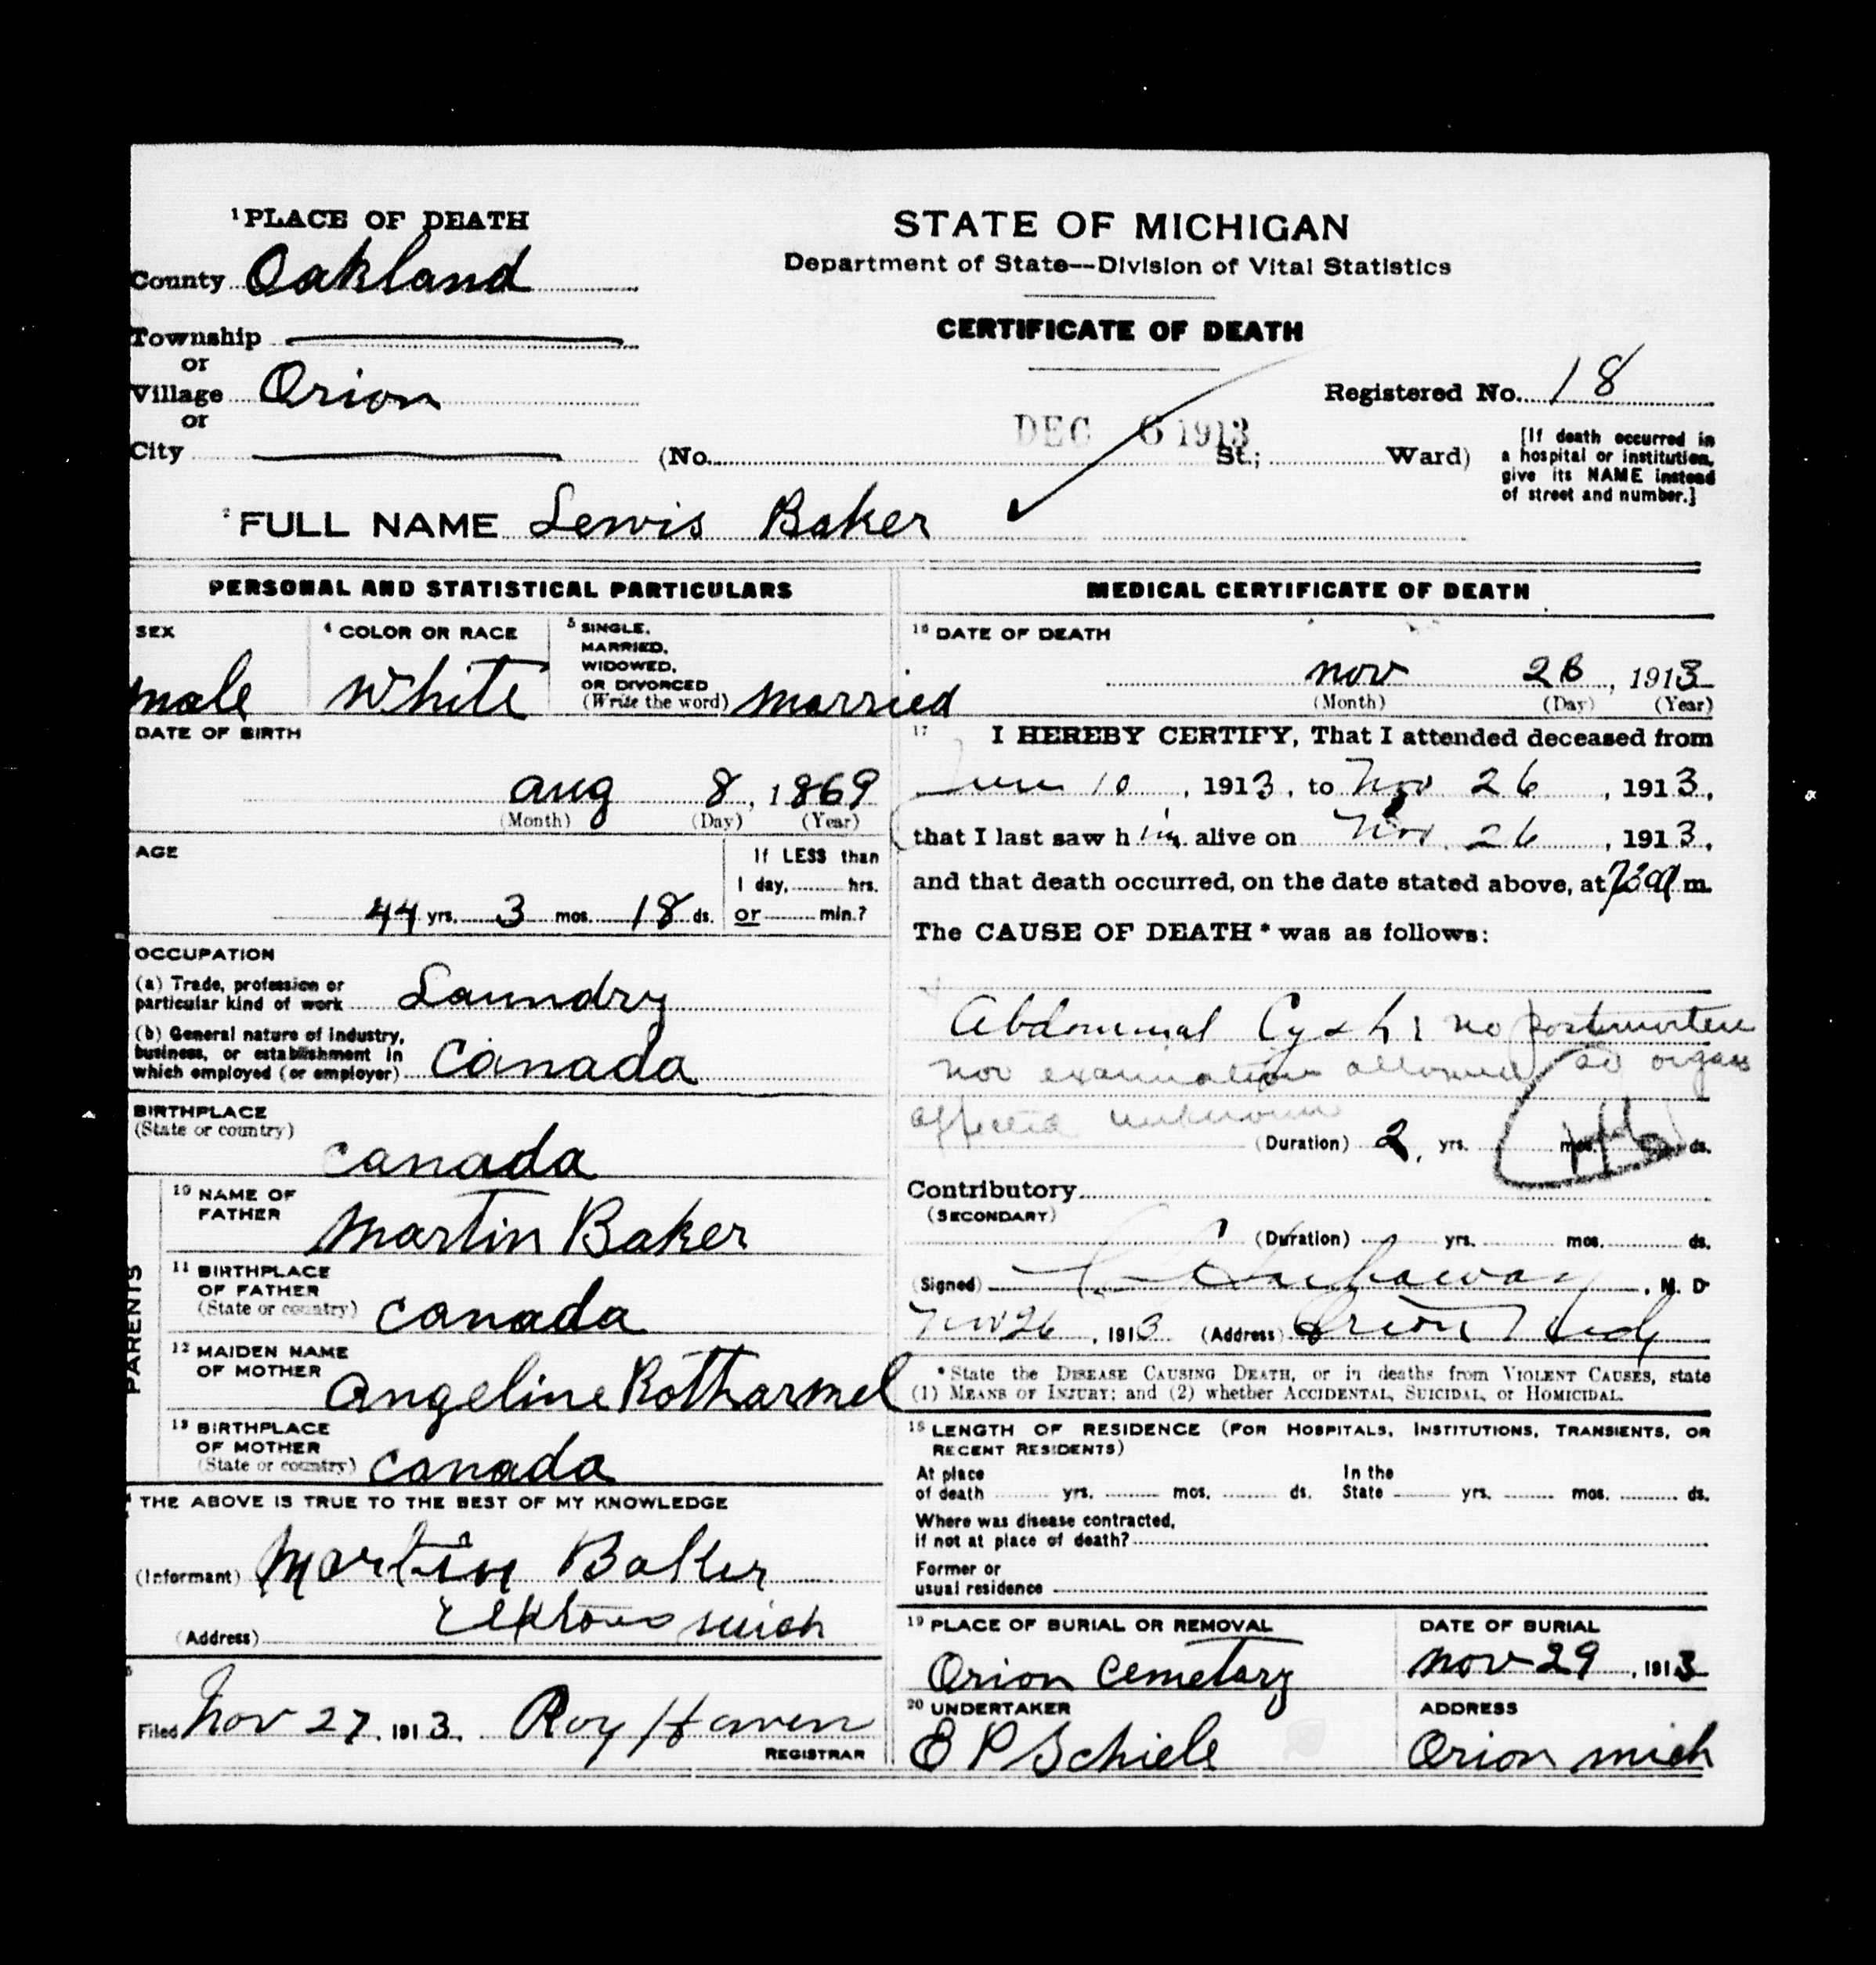 1 PLACE OF DEATH
County Oakland
Township
or
Village Orion
or
City
STATE OF MICHIGAN
Department of State—Division of Vital Statistics
CERTIFICATE OF DEATH
Registered No. 18
DEC 6 1913
(No. St.; Ward)
[If death occurred in
a hospital or institution,
give its NAME instead
of street and number.]
2 FULL NAME Lewis Baker
PERSONAL AND STATISTICAL PARTICULARS
SEX
male
4 COLOR OR RACE
White
5 SINGLE,
MARRIED,
WIDOWED,
OR DIVORCED
(Write the word) married
DATE OF BIRTH
aug 8, 1869
(Month) (Day) (Year)
AGE
44 yrs. 3 mos. 18 ds.
If LESS than
1 day, hrs.
or min.?
OCCUPATION
(a) Trade, profession or
particular kind of work Laundry
(b) General nature of industry,
business, or establishment in
which employed (or employer) Canada
BIRTHPLACE
(State or country)
Canada
PARENTS
10 NAME OF
FATHER
Martin Baker
11 BIRTHPLACE
OF FATHER
(State or country) Canada
12 MAIDEN NAME
OF MOTHER
Angeline Rotharmel
13 BIRTHPLACE
OF MOTHER
(State or country) Canada
THE ABOVE IS TRUE TO THE BEST OF MY KNOWLEDGE
(Informant) Martin Baker
(Address) mich
Filed Nov 27, 1913. Roy Haven
REGISTRAR
MEDICAL CERTIFICATE OF DEATH
16 DATE OF DEATH
nov 26, 1913
(Month) (Day) (Year)
17 I HEREBY CERTIFY, That I attended deceased from
June 10, 1913, to Nov 26, 1913,
that I last saw him alive on Nov. 26, 1913,
and that death occurred, on the date stated above, at m.
The CAUSE OF DEATH* was as follows:
Abdominal Cyst, no postmortem
nor examination allowed so organs
affected unknown
(Duration) 2 yrs. mos. ds.
Contributory
(SECONDARY)
(Duration) yrs. mos. ds.
(Signed) , M. D
Nov 26, 1913 (Address) Orion Mich
*State the DISEASE CAUSING DEATH, or in deaths from VIOLENT CAUSES, state
(1) MEANS OF INJURY; and (2) whether ACCIDENTAL, SUICIDAL, or HOMICIDAL.
18 LENGTH OF RESIDENCE (FOR HOSPITALS, INSTITUTIONS, TRANSIENTS, OR
RECENT RESIDENTS)
At place
of death yrs. mos. ds.
In the
State yrs. mos. ds.
Where was disease contracted,
if not at place of death?
Former or
usual residence
19 PLACE OF BURIAL OR REMOVAL
Orion Cemetary
DATE OF BURIAL
nov 29, 1913
20 UNDERTAKER
E P Schiele
ADDRESS
Orion mich